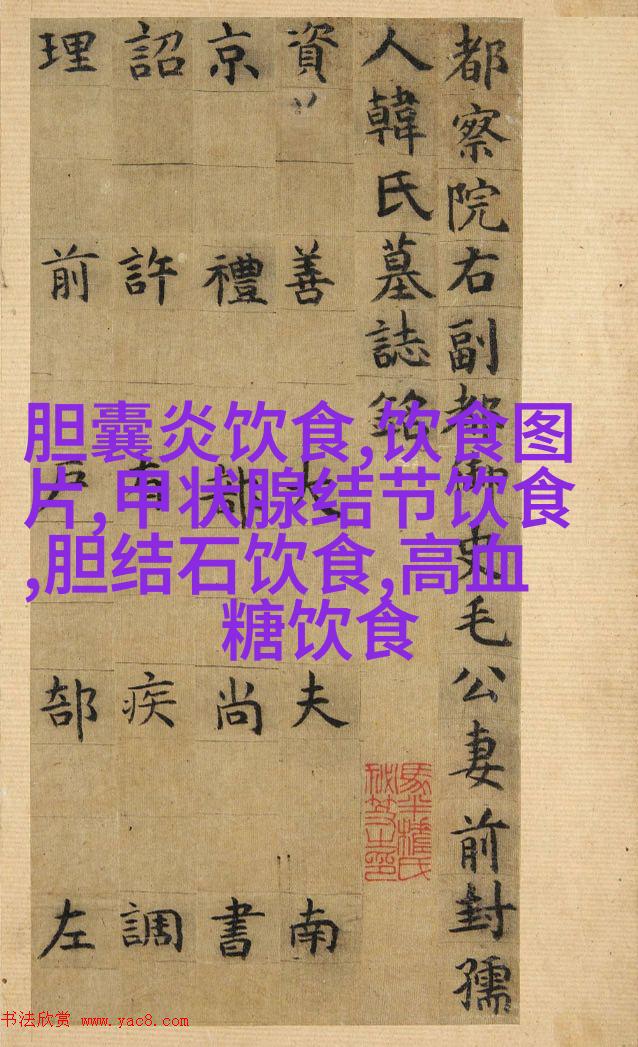 都察院右副都御史毛公妻前封孺
人韓氏墓誌銘
資善大夫南
京禮部尚書
詔許有疾調
理前戶部左
胆囊炎饮食,饮食图
片,甲状腺结节饮食
,胆结石饮食,高血
糖饮食
书法欣赏 www.yac8.com